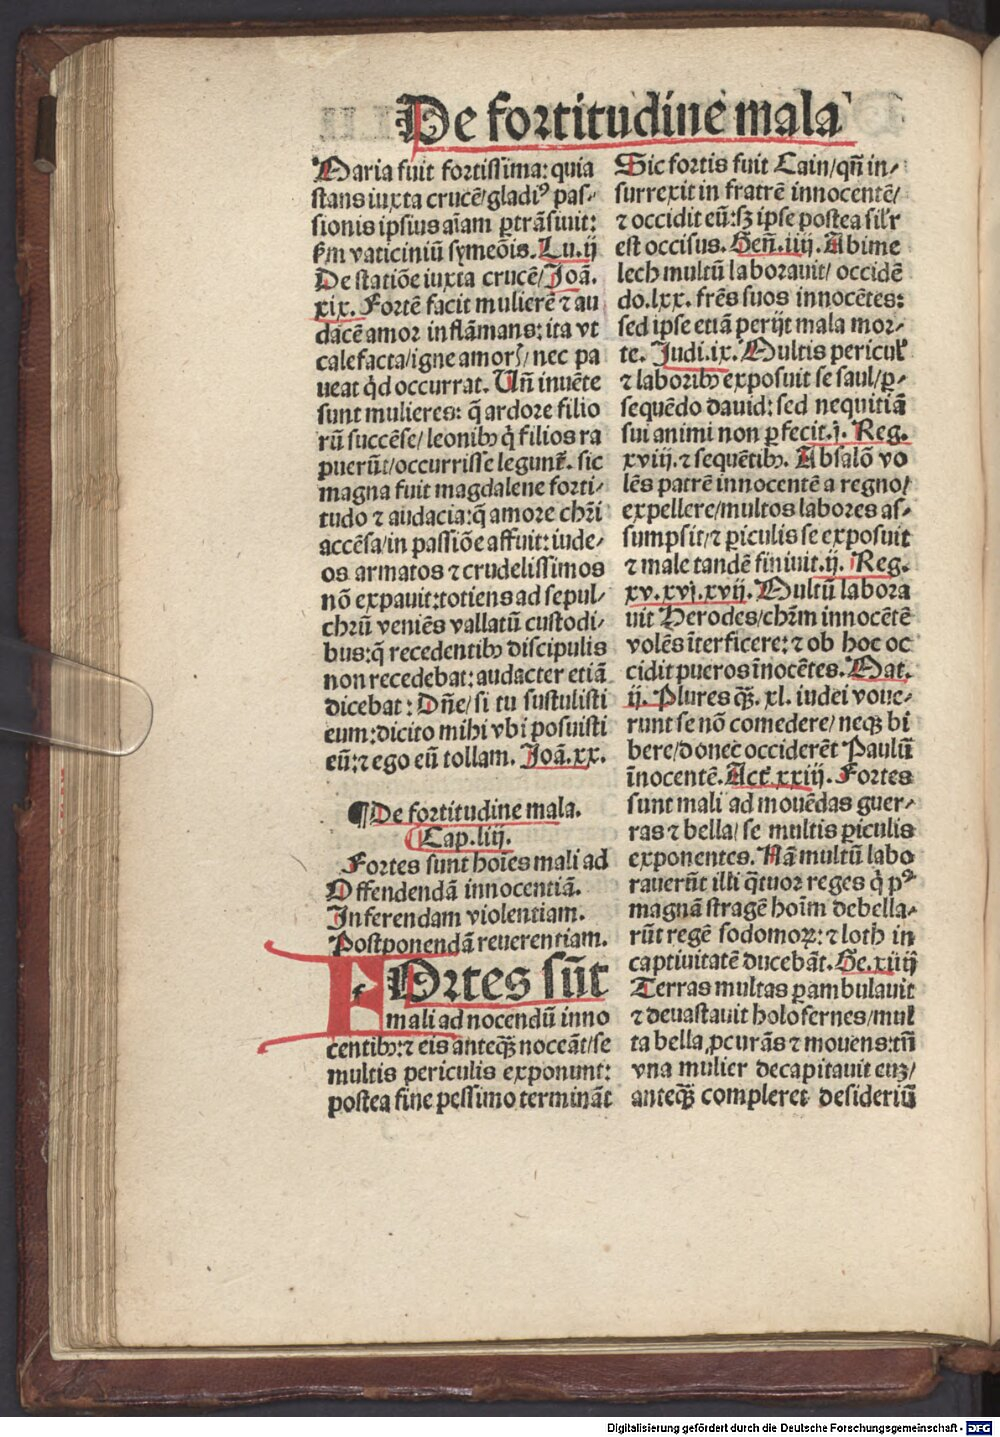 De fortitudine mala
Maria fuit fortissima: quia
stans iuxta crucē/gladiꝰ pas⸗
sionis ipsius aīam ꝑtrāsiuit:
ẜm vaticiniū symeōis. Lu.ij
De statiōe iuxta crucē/Joā.
xix. Fortē facit mulierē ⁊ au
dacē amor inflāmans: ita vt
calefacta/igne amorꝭ/nec pa
ueat qd̛ occurrat. Uñ inuēte
sunt mulieres: q̄ ardore filio
rū succēse/leonibꝰ q̇ filios ra
puerūt/occurrisse legunt̃. sic
magna fuit magdalene forti⸗
tudo ⁊ audacia:q̄ amore chr̄i
accēsa/in passiōe affuit: iude⸗
os armatos ⁊ crudelissimos
nō expauit:totiens ad sepul⸗
chrū veniēs vallatū custodi⸗
bus:q̄ recedentibꝰ discipulis
non recedebat: audacter etiā
dicebat: Dñe/si tu sustulisti
eum:dicito mihi vbi posuisti
eū:⁊ ego eū tollam. Joā.xx.
¶De fortitudine mala.
Cap.liij.
Fortes sunt hoīes mali ad
Offendendā innocentiā.
Inferendam violentiam.
Postponendā reuerentiam.
FOrtes sūt
mali ad nocendū inno
centibꝰ:⁊ eis anteqꝫ̄ noceāt/se
multis periculis exponunt:
postea fine pessimo termināt
Sic fortis fuit Cain/qñ in⸗
surrexit in fratrē innocentē/
⁊ occidit eū:sꝫ ipse postea sil̛r
est occisus. Geñ.iiij. Abime
lech multū laborauit/ occidē
do.lxx. frēs suos innocētes:
sed ipse etiā perijt mala mor⸗
te. Judi.ix. Multis pericul̛
⁊ laboribꝰ exposuit se saul/ꝑ⸗
sequēdo dauid: sed nequitiā
sui animi non ꝑfecit.j. Reg.
xviij.⁊ sequētibꝰ. Absalō vo
lēs patrē innocentē a regno/
expellere/multos labores as⸗
sumpsit/⁊ ꝑiculis se exposuit
⁊ male tandē finiuit.ij. Reg.
xv.xvj.xvij. Multū labora
uit Herodes/chr̄m innocētē
volēs īterficere: ⁊ ob hoc oc
cidit pueros īnocētes. Mat.
ij. Plures qꝫ̄. xl. iudei voue⸗
runt se nō comedere/ neqꝫ bi
bere/donec occiderēt Paulū
īnocentē. Act̛.xxiij. Fortes
sunt mali ad mouēdas guer⸗
ras ⁊ bella/ se multis ꝑiculis
exponentes. Nā multū labo
rauerūt illi q̄tuor reges q̇ pꝰ
magnā stragē hoīm debella⸗
rūt regē sodomoꝝ: ⁊ loth in
captiuitatē ducebāt. Ge.xiiij
Terras multas ꝑambulauit
⁊ deuastauit holofernes/mul
ta bella ꝓcurās ⁊ mouens:tñ
vna mulier decapitauit eūꝫ/
anteqꝫ̄ compleret desideriū
Digitalisierung gefördert durch die Deutsche Forschungsgemeinschaft - DFG